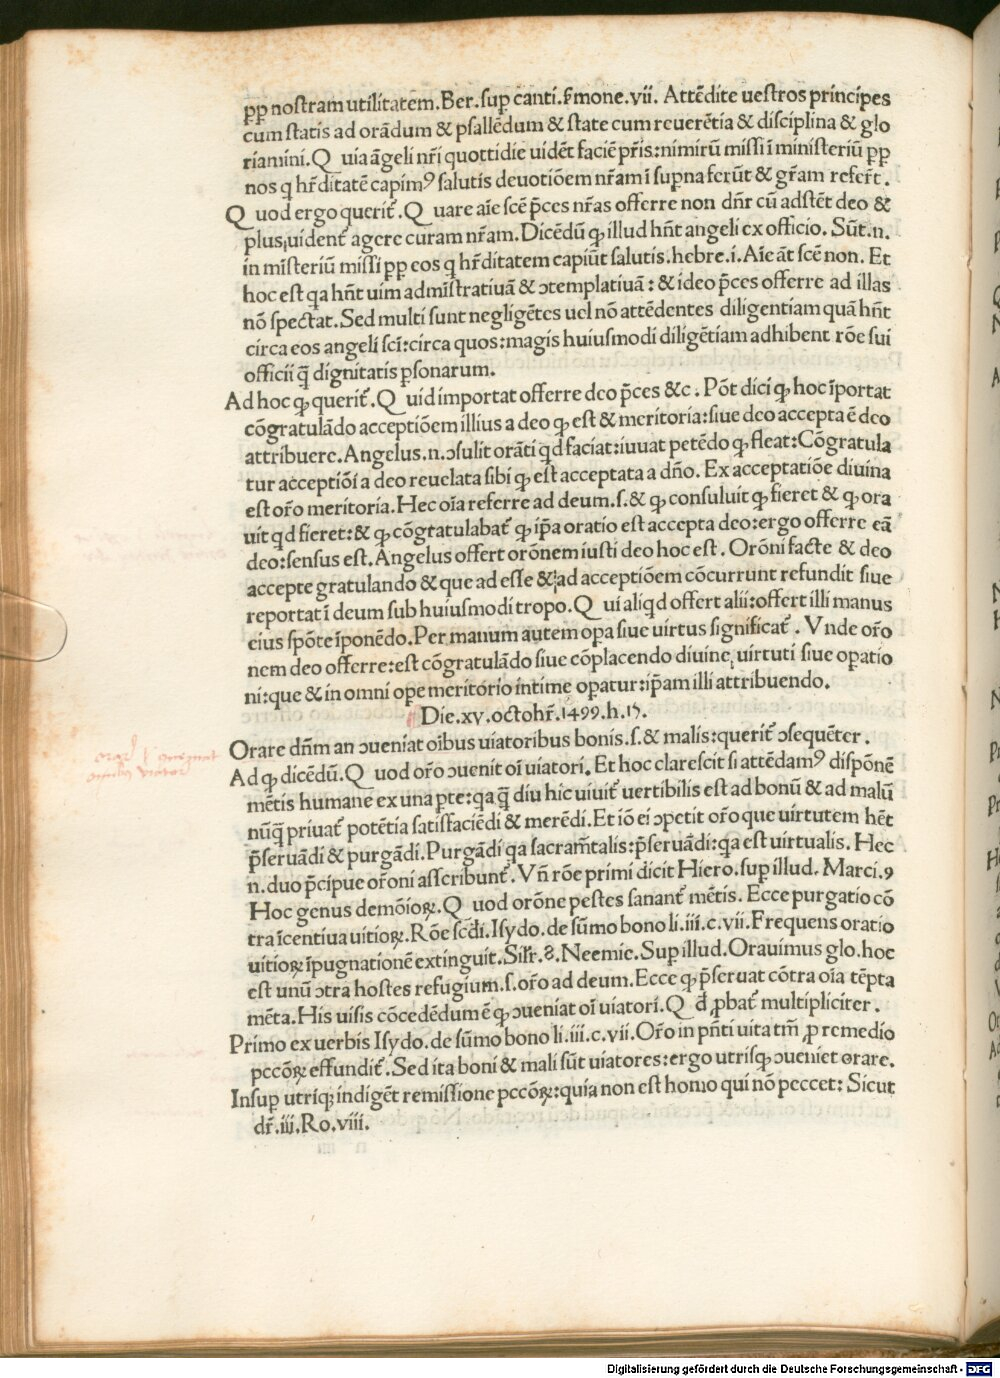 pp nostram utilitatem. Ber. sup canti. f̄mone. vii. Attēdite uestros principes
cum statis ad orādum & psallēdum & state cum reuerētia & disciplina & glo
riamini. Quia āgeli nr̄i quottidie uidēt faciē pr̄is: nimirū missi ī ministeriū pp
nos q hr̄ditatē capimꝰ salutis deuotiōem nr̄am ī supna ferūt & gr̄am refert̄.
Quod ergo querit̄. Quare aīe scē p̄ces nr̄as offerre non dn̄r cū adstēt deo &
plus uident̄ agere curam nr̄am. Dicēdū ꝙ illud hn̄t angeli ex officio. Sūt. n.
in misteriū missi pp eos q hr̄ditatem capiūt salutis. hebre. i. Aīe āt scē non. Et
hoc est qa hn̄t uim admīstratiuā & ↄtemplatiuā: & ideo p̄ces offerre ad illas
nō spectat. Sed multi sunt negligētes uel nō attēdentes diligentiam quā hn̄t
circa eos angeli sc̄i: circa quos: magis huiusmodi diligētiam adhibent rōe sui
officii q̄ dignitatis psonarum.
Ad hoc ꝙ querit̄. Quid importat offerre deo p̄ces &c. Pōt dici ꝙ hoc īportat
cōgratulādo acceptiōem illius a deo ꝙ est & meritoria: siue deo accepta ē deo
attribuere. Angelus. n. ↄsulit orāti qd faciat: iuuat petēdo ꝙ fleat: Cōgratula
tur acceptiōi a deo reuelata sibi ꝙ est acceptata a dn̄o. Ex acceptatiōe diuina
est or̄o meritoria. Hec oīa referre ad deum. s. & ꝙ consuluit ꝙ fieret & ꝙ ora
uit qd fieret: & ꝙ cōgratulabat̄ ꝙ ip̄a oratio est accepta deo: ergo offerre eā
deo: sensus est. Angelus offert orōnem iusti deo hoc est. Orōni facte & deo
accepte gratulando & que ad esse & ad acceptiōem cōcurrunt refundit siue
reportat ī deum sub huiusmodi tropo. Qui aliqd offert alii: offert illi manus
eius spōte īponēdo. Per manum autem opa siue uirtus significat̄. Vnde or̄o
nem deo offerre: est cōgratulādo siue cōplacendo diuine uirtuti siue opatio
ni: que & in omni ope meritorio intime opatur: ip̄am illi attribuendo.
Die. xv. octobr̄. 1499. h. 17.
Orare dn̄m an ↄueniat oībus uiatoribus bonis. s. & malis: querit̄ ↄsequēter.
Ad ꝙ dicēdū. Quod or̄o ↄuenit oī uiatori. Et hoc clarescit si attēdamꝰ dispōnē
mētis humane ex una pte: qa q̄ diu hic uiuit̄ uertibilis est ad bonū & ad malū
nūq̄ priuat̄ potētia satisfaciēdi & merēdi. Et iō ei ↄpetit or̄o que uirtutem hēt
p̄seruādi & purgādi. Purgādi qa sacram̄talis: p̄seruādi: qa est uirtualis. Hec
n. duo p̄cipue or̄oni asscribunt̄. Vn̄ rōe primi dicit Hiero. sup illud. Marci. 9
Hoc genus demōioꝝ. Quod orōne pestes sanant̄ mētis. Ecce purgatio cō
tra īcentiua uitioꝝ. Rōe sc̄di. Isydo. de sūmo bono li. iii. c. vii. Frequens oratio
uitioꝝ īpugnationē extinguit. Sil̄r. 8. Neemie. Sup illud. Orauimus glo. hoc
est unū ↄtra hostes refugium. s. or̄o ad deum. Ecce ꝙ p̄seruat cōtra oīa tēpta
mēta. His uisis cōcedēdum ē ꝙ ↄueniat oī uiatori. Qd̄ ꝓbat̄ multipliciter.
Primo ex uerbis Isydo. de sūmo bono li. iii. c. vii. Or̄o in pn̄ti uita tm̄ ꝓ remedio
pccōꝝ effundit̄. Sed ita boni & mali sūt uiatores: ergo utrisꝙ ↄueniet orare.
Insup utriꝗ indigēt remissione pccōꝝ: quia non est homo qui nō peccet: Sicut
dr̄. iii. Ro. viii.
Digitalisierung gefördert durch die Deutsche Forschungsgemeinschaft - DFG